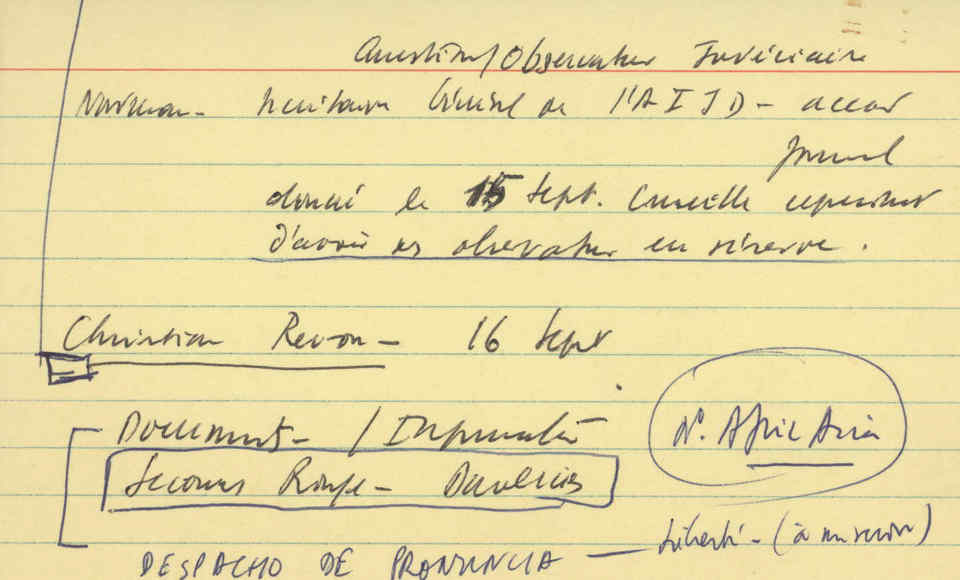 Question/Observateur Judiciaire
Nordmann - Secrétaire Général de l'AIJD - accord
formel
donné le 15 Sept. Conseille cependant
d'avoir un observateur en réserve.
Christian Revon - 16 Sept
Document - / Information
Secours Rouge -
N°. Afric Asia
DESPACHO DE PRONUNCIA — liberté -